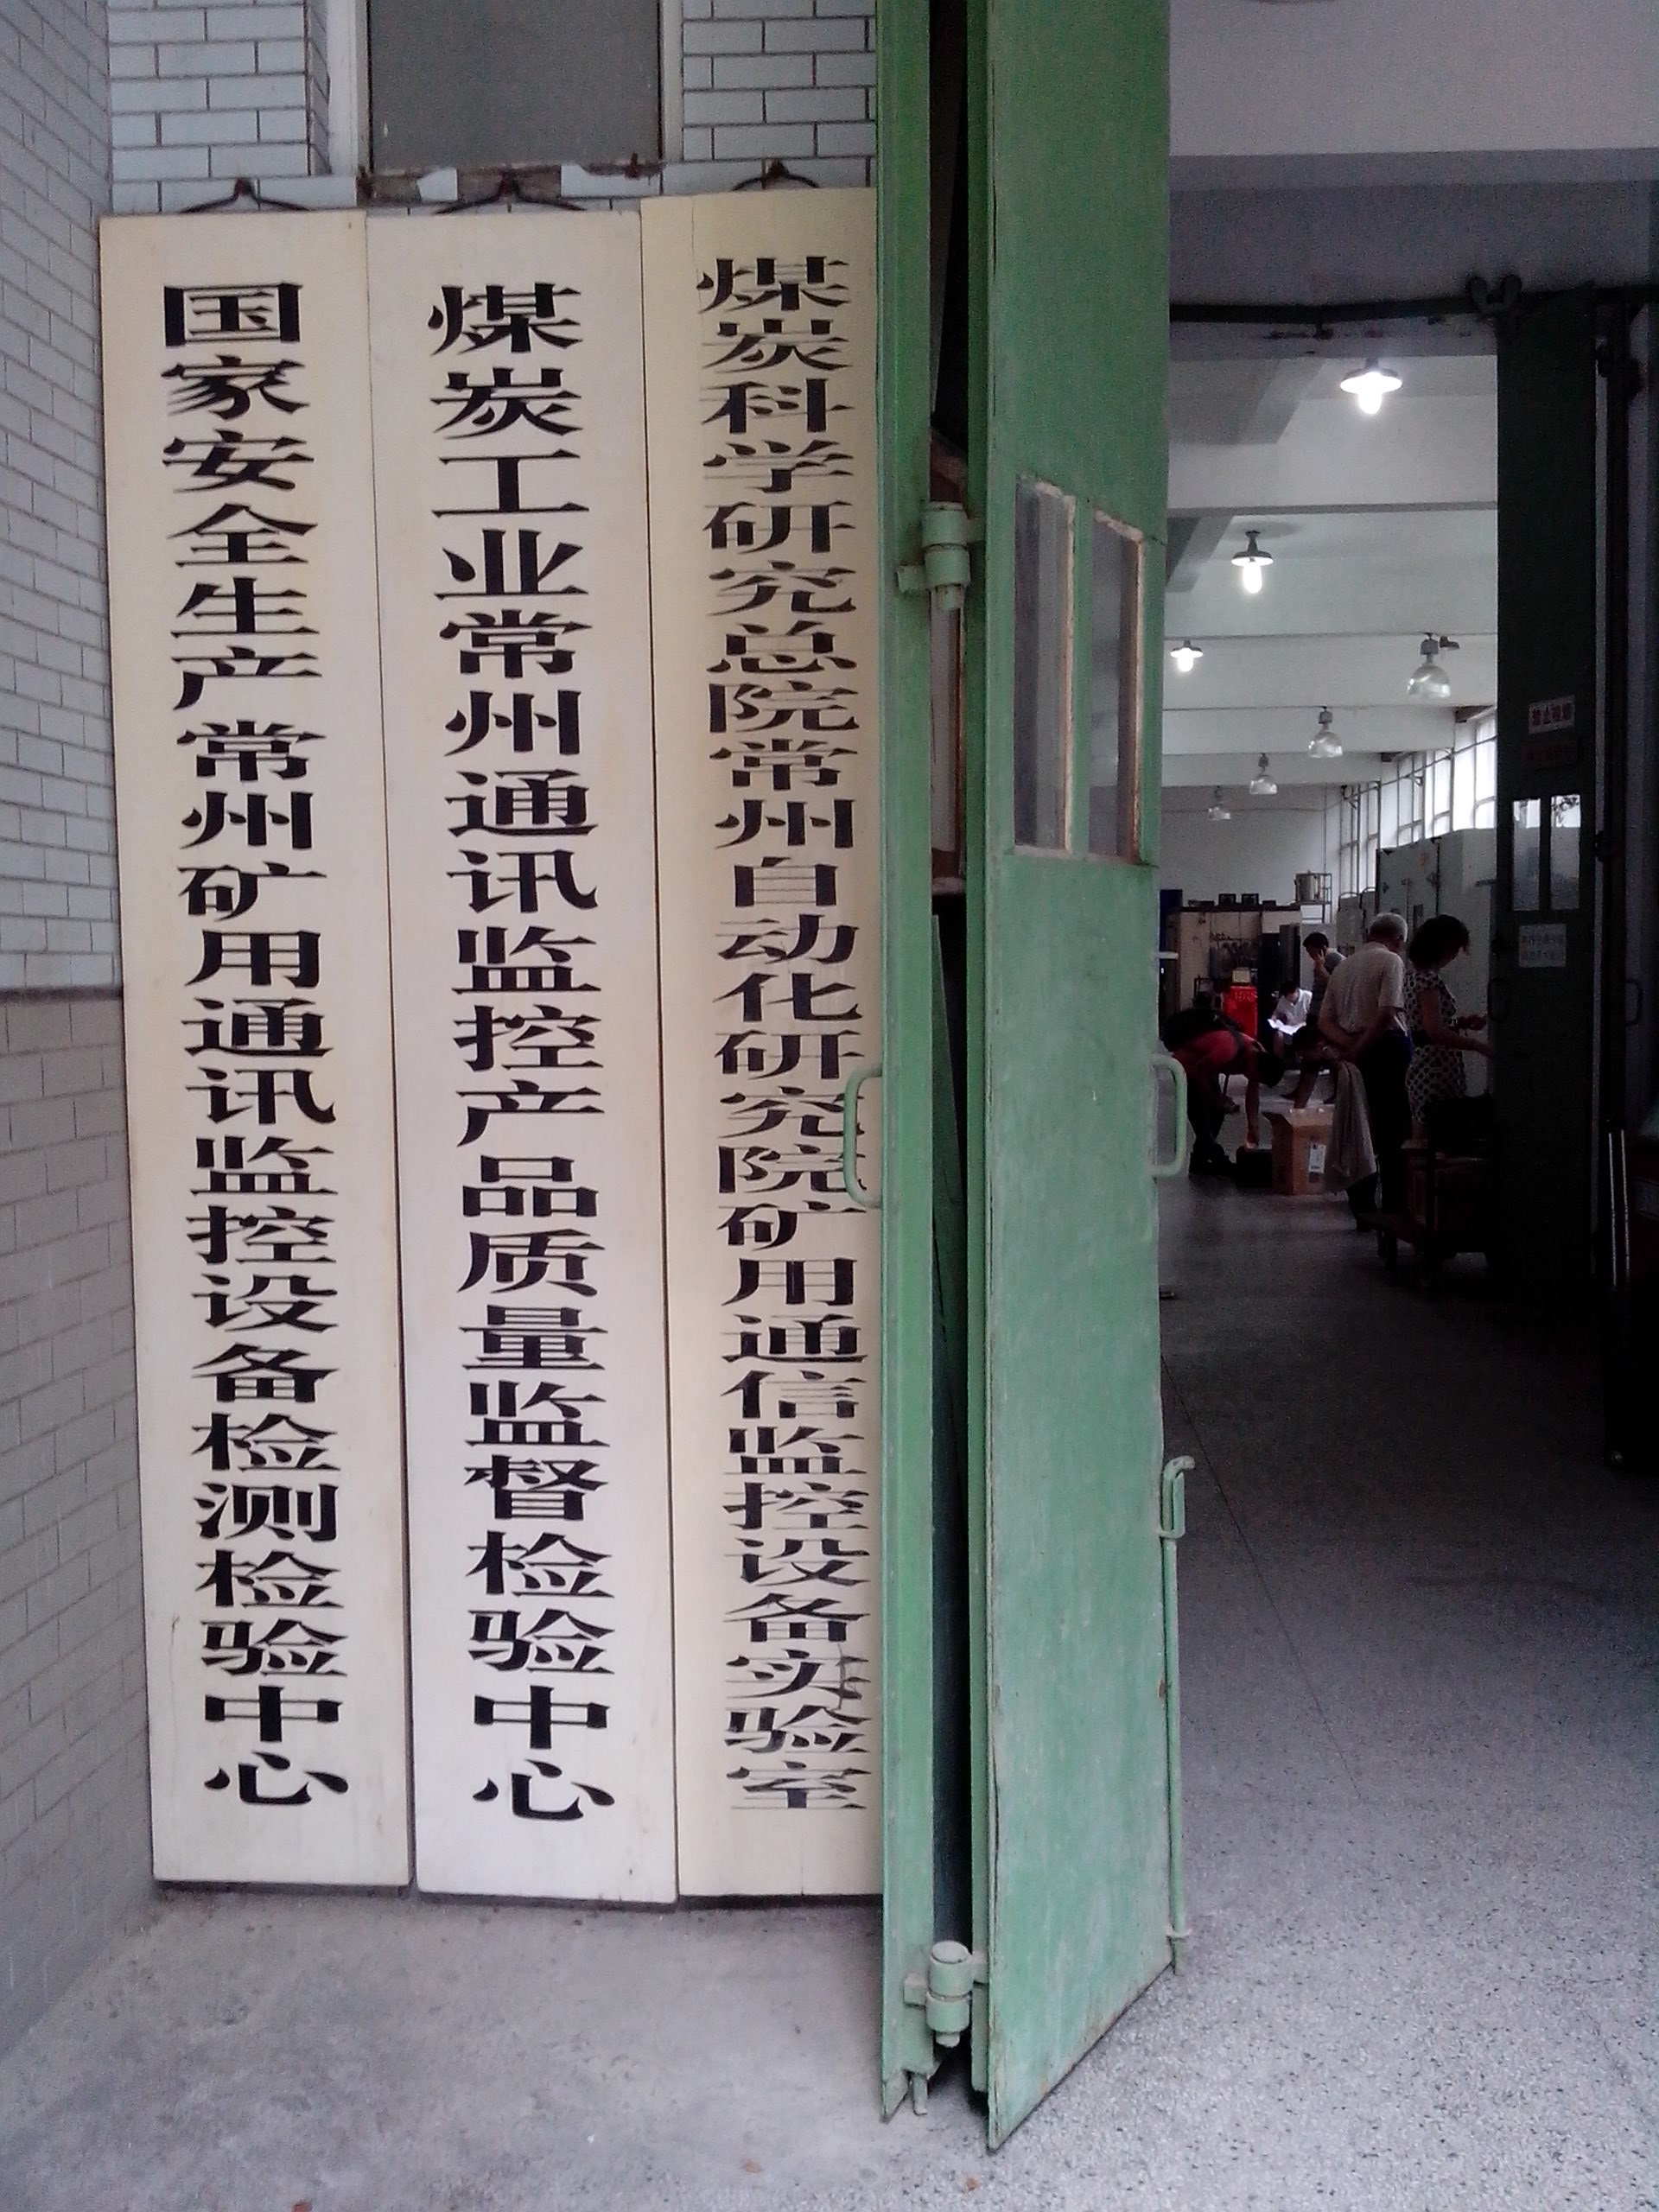 国家安全生产常州矿用通讯监控设备检测检验中心
煤炭工业常州通讯监控产品质量监督检验中心
煤炭科学研究总院常州自动化研究院矿用通信监控设备实验室